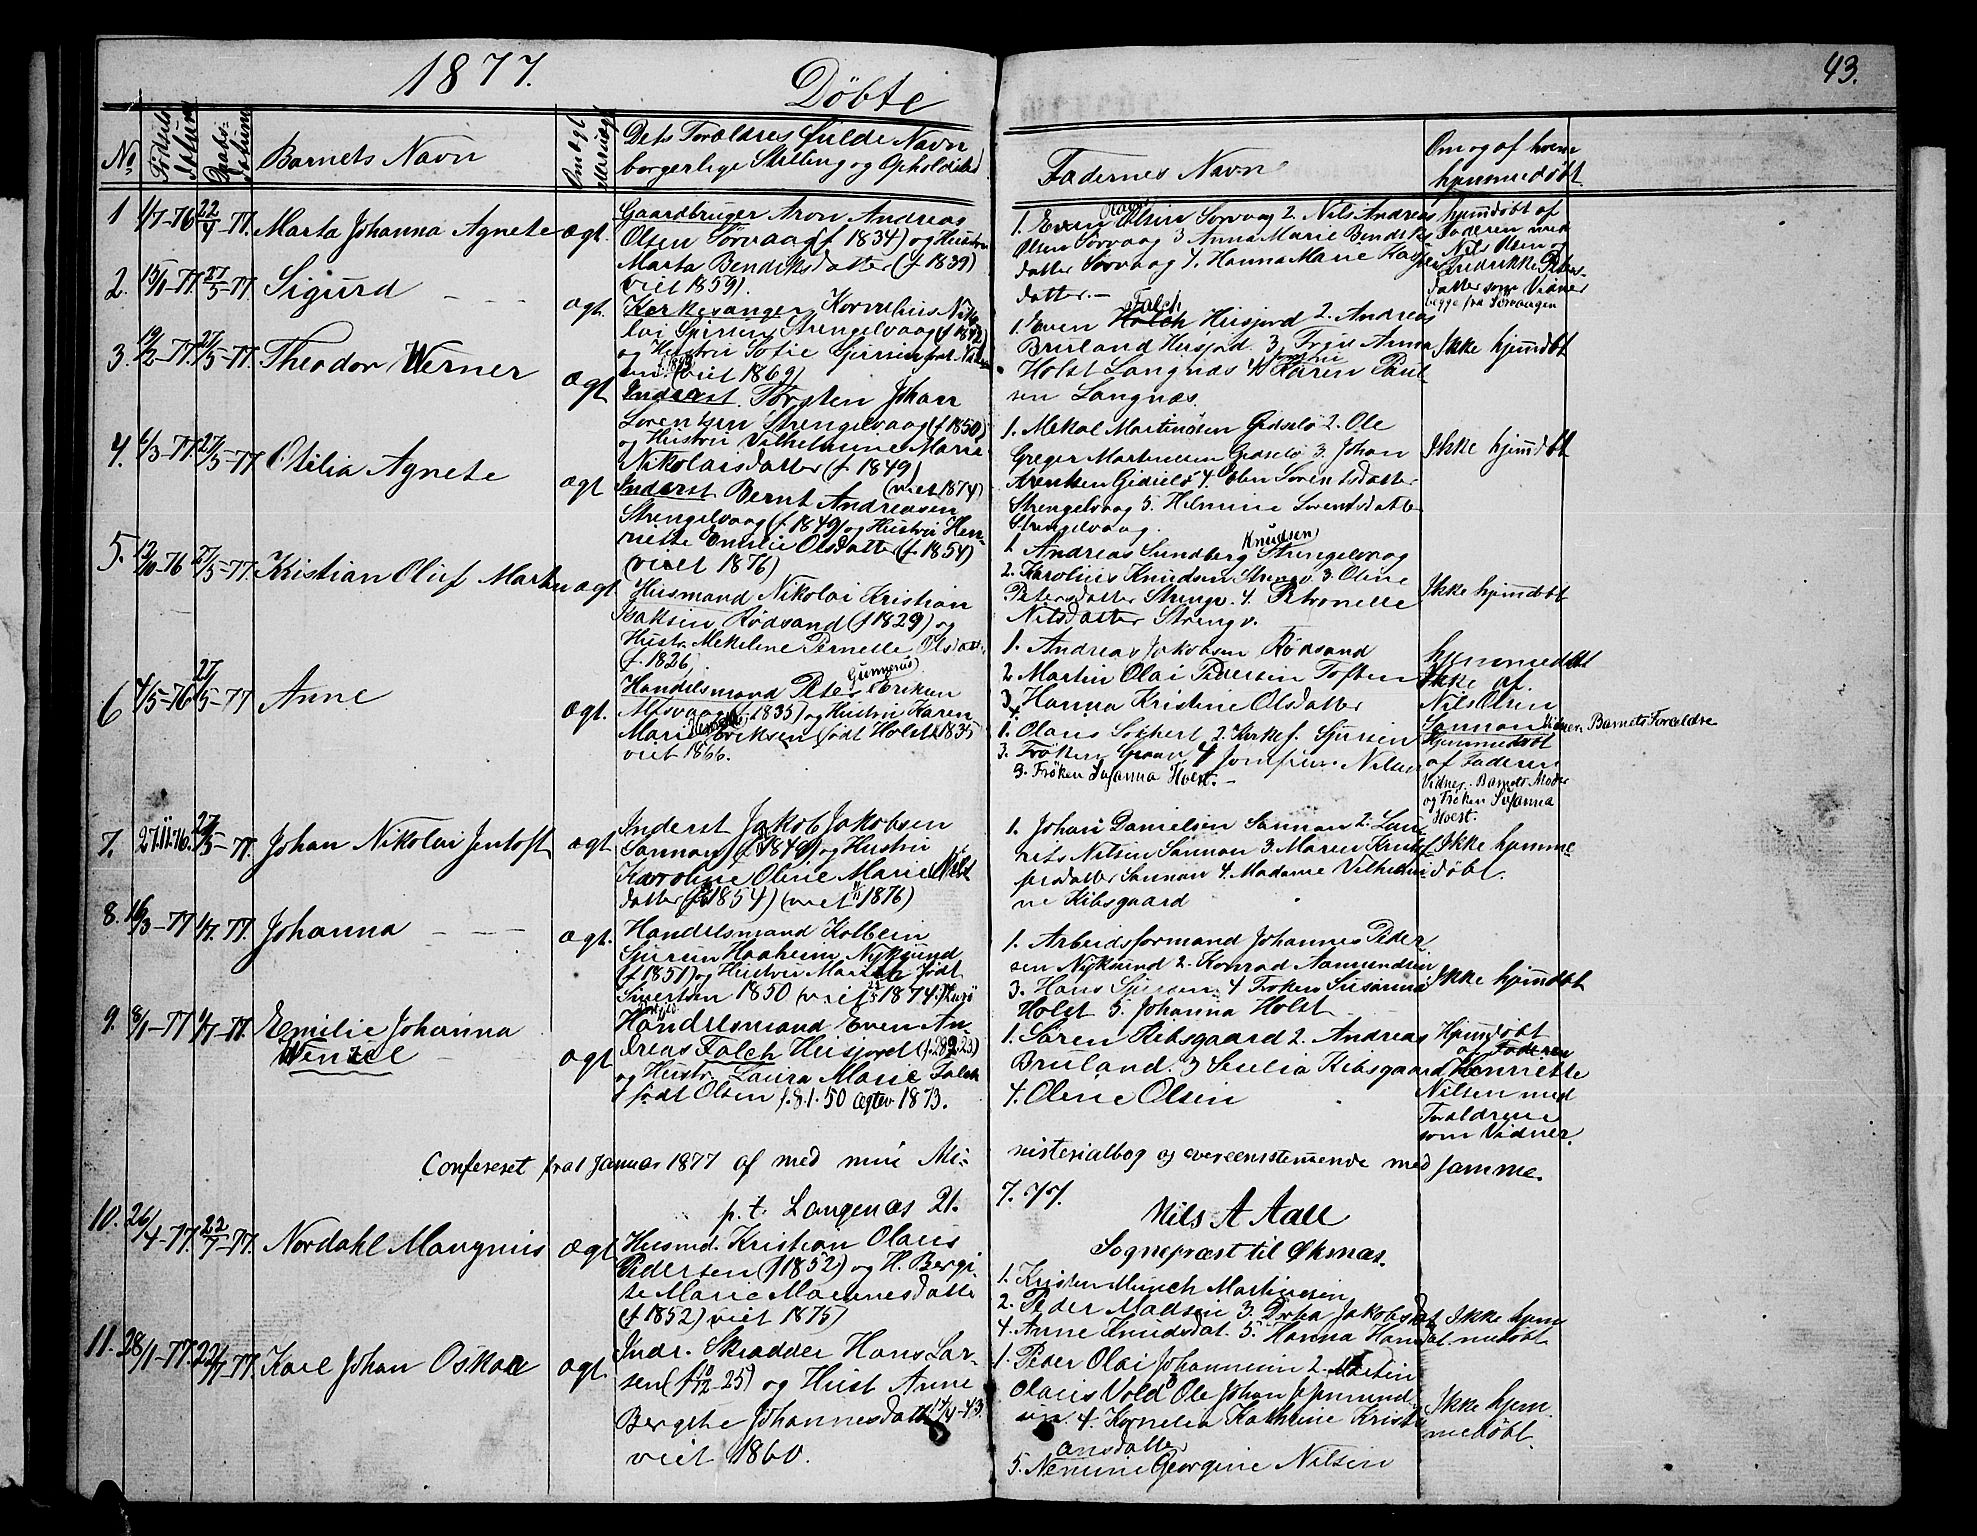 1877.
Døbte
43.
No
Fødsels datum
Daabs- datum
Barnets Navn
Om ægt
Dets Forældres fulde Navn
borgerlige Stilling og Opholdsted
Fadernes Navn
Om og af hvem
hjemmedøbt
1
1/7-76
22/4-77.
Marta Johanna Agnete
ægt.
Gaardbruger Aron Andreas
Olsen Sørvaag (f 1834) og Hustru
Marta Bendiksdatter (f 1839)
viet 1859).
1. Even Olsen Sørvaag 2. Nils Andreas
Olsen Sørvaag 3 Anna Marie Bendiks
datter Sørvaag 4. Hanna Marie
datter.-
hjemdøbt af
Faderen med
Nils Olsen og
Fredrikke Peters-
datter som Vidner
begge fra Sørvaagen
2.
15/1-77
27/5-77
Sigurd
ægt.
Kirkesanger Kornelius Niko
lai Sjursen Strengelvaag (f 1842)
og Hustru Sofie Sjursen født Niel
sen (viet 1869)
1. Even Falch Huisjord 2. Andreas
Bruland Huisjord. 3 Frøis Anna
Holst Langnæs 4 Karen Paul
sen Langnæs.
Ikke hjemdøbt
3.
19/2-77
27/5-77
Theodor Werner
ægt
Inderst. Torsten Johan
Lorentsen Strengelvaag (f 1850)
og Hustru Vilhelmine Marie
Nikolaisdatter (f 1849)
(viet 1874)
1. Mekal Martinusen Gisløe 2. Ole
Greger Martinusen Gisløe 3. Johan
Arentsen Gisløe 4. Elen Sørensdatter
Strengelvaag 5. Helmine Lorentsdatter
Strengelvaag.
Ikke hjemdøbt
4.
6/3-77
27/5-77
Otilia Agnete
ægt
Inderst Bernt Andreasen
Strengelvaag (f 1849) og Hustru Hen-
riette Emilie Olsdatter (f 1854)
(viet 1876)
1. Andreas Sundberg Knudsen Strengelvaag
2. Karolius Knudsen Strengv. 3. Oline
Petersdatter Strengv. 4. Petronelle
Nilsdatter Strengv.
Ikke hjemdøbt
5.
19/10-76
27/5-77.
Kristian Oluf Martin
ægt
Husmand Nikolai Kristian
Isaksen Rødsand (f 1829) og
Hustr. Mekeline Pernelle Olsdatt.
(f. 1826)
1. Andreas Jakobsen Rødsand
2 Martin Olai Pedersen Toften
3 Hanna Kristine Olsdatter
hjemmedøbt
Ikke af
Nils Olsen
Sannan Vidner Barnets Forældre
6
4/5-76
27/5-77
Anne
ægt.
Handelsmand Peter Gunnerus Eriksen
Alfsvaag (f 1835) og Hustru Karen
Marie Henriette Eriksen født Holst 1835
viet 1866.
1. Olaus 2. Kirkes. Sjursen
3. Frøken 4 Nilsen
3. Frøken Susanna Holst.-
Hjemmedøbt
af Faderen
Vidner. Barnets Moder
og Frøken Susanna
Holst.
7.
27.11.76.
27/5-77.
Johan Nikolai Jentoft
ægt
Inderst Jakob Jakobsen
Sannan (f 1849) og Hustru
Karoline Oline Marie Nils
datter (f 1854) (viet 1876)
1. Johan Danielsen Sannan 2. Lau
rits Nilsen Sannan 3. Maren
datter Sannan 4. Madame Vilhelmi
ne Kibsgaard
Ikke hjemme-
døbt.
8.
16/3-77
1/7.77.
Johanna
ægt.
Handelsmand Kolbein
Sjursen Haaheim, Nyksund
(f 1851) og Hustru født
Sivertsen 1850 (viet 1874)
1. Arbeidsformand Johannes Peder
sen Nyksund 2. Konrad Aamundsen
3. Hans Sjursen 4 Frøken Susanna
Holst 5. Johanna Holst
Ikke hjemdøbt
9.
8/1-77
1/7-77.
Emilie Johanna
Wenzel
ægt
Handelsmand Even An-
dreas Falch Huisjord
og Hustr. Laura Marie Falch
født Olsen f. 8.1.50 ægtev 1873.
1. Søren Kibsgaard 2. Andreas
Bruland. 3 Seselia Kibsgaard
4. Oline Olsen
Hjemdøbt
af Faderen
Henriette
Nilsen med
Forældrene
som Vidner.
Confereret fra 1 Januar 1877 af med min Mi-
nisterialbog og overeensstemmende med samme.
p. t. Langenæs 21.
7. 77.
Nils A Aall
Sognepræst til Øksnæs.
10.
26/4-77.
22/7-77.
Nordahl Mangnus
ægt
Husmd. Kristian Olaus
Pedersen (f 1852) og H. Bergi-
te Marie datte
(f 1852) viet 1875)
1. Kristen Munch Martinusen
2. Peder Madsen 3. Dorthea Jakobsdat
4. Anne Knudsdat. 5. Hanna Hansdat.
Ikke hjem
medøbt
11.
28/1-77.
22/7-77.
Karl Johan Oskar
ægt.
Indr. Skrædder Hans Lar-
sen (f 10/12-25) og Hust Anne
Bergite Johannesdatt 17/4-43
viet 1860.
1. Peder Olai Johannesen 2. Martin
Olaus Vold 3 Ole Johan
sen. 4. Kornelia Kathrine Kristi
ansdatter
5. Nemine Georgine Nilsen
Ikke hjem-
medøbt.